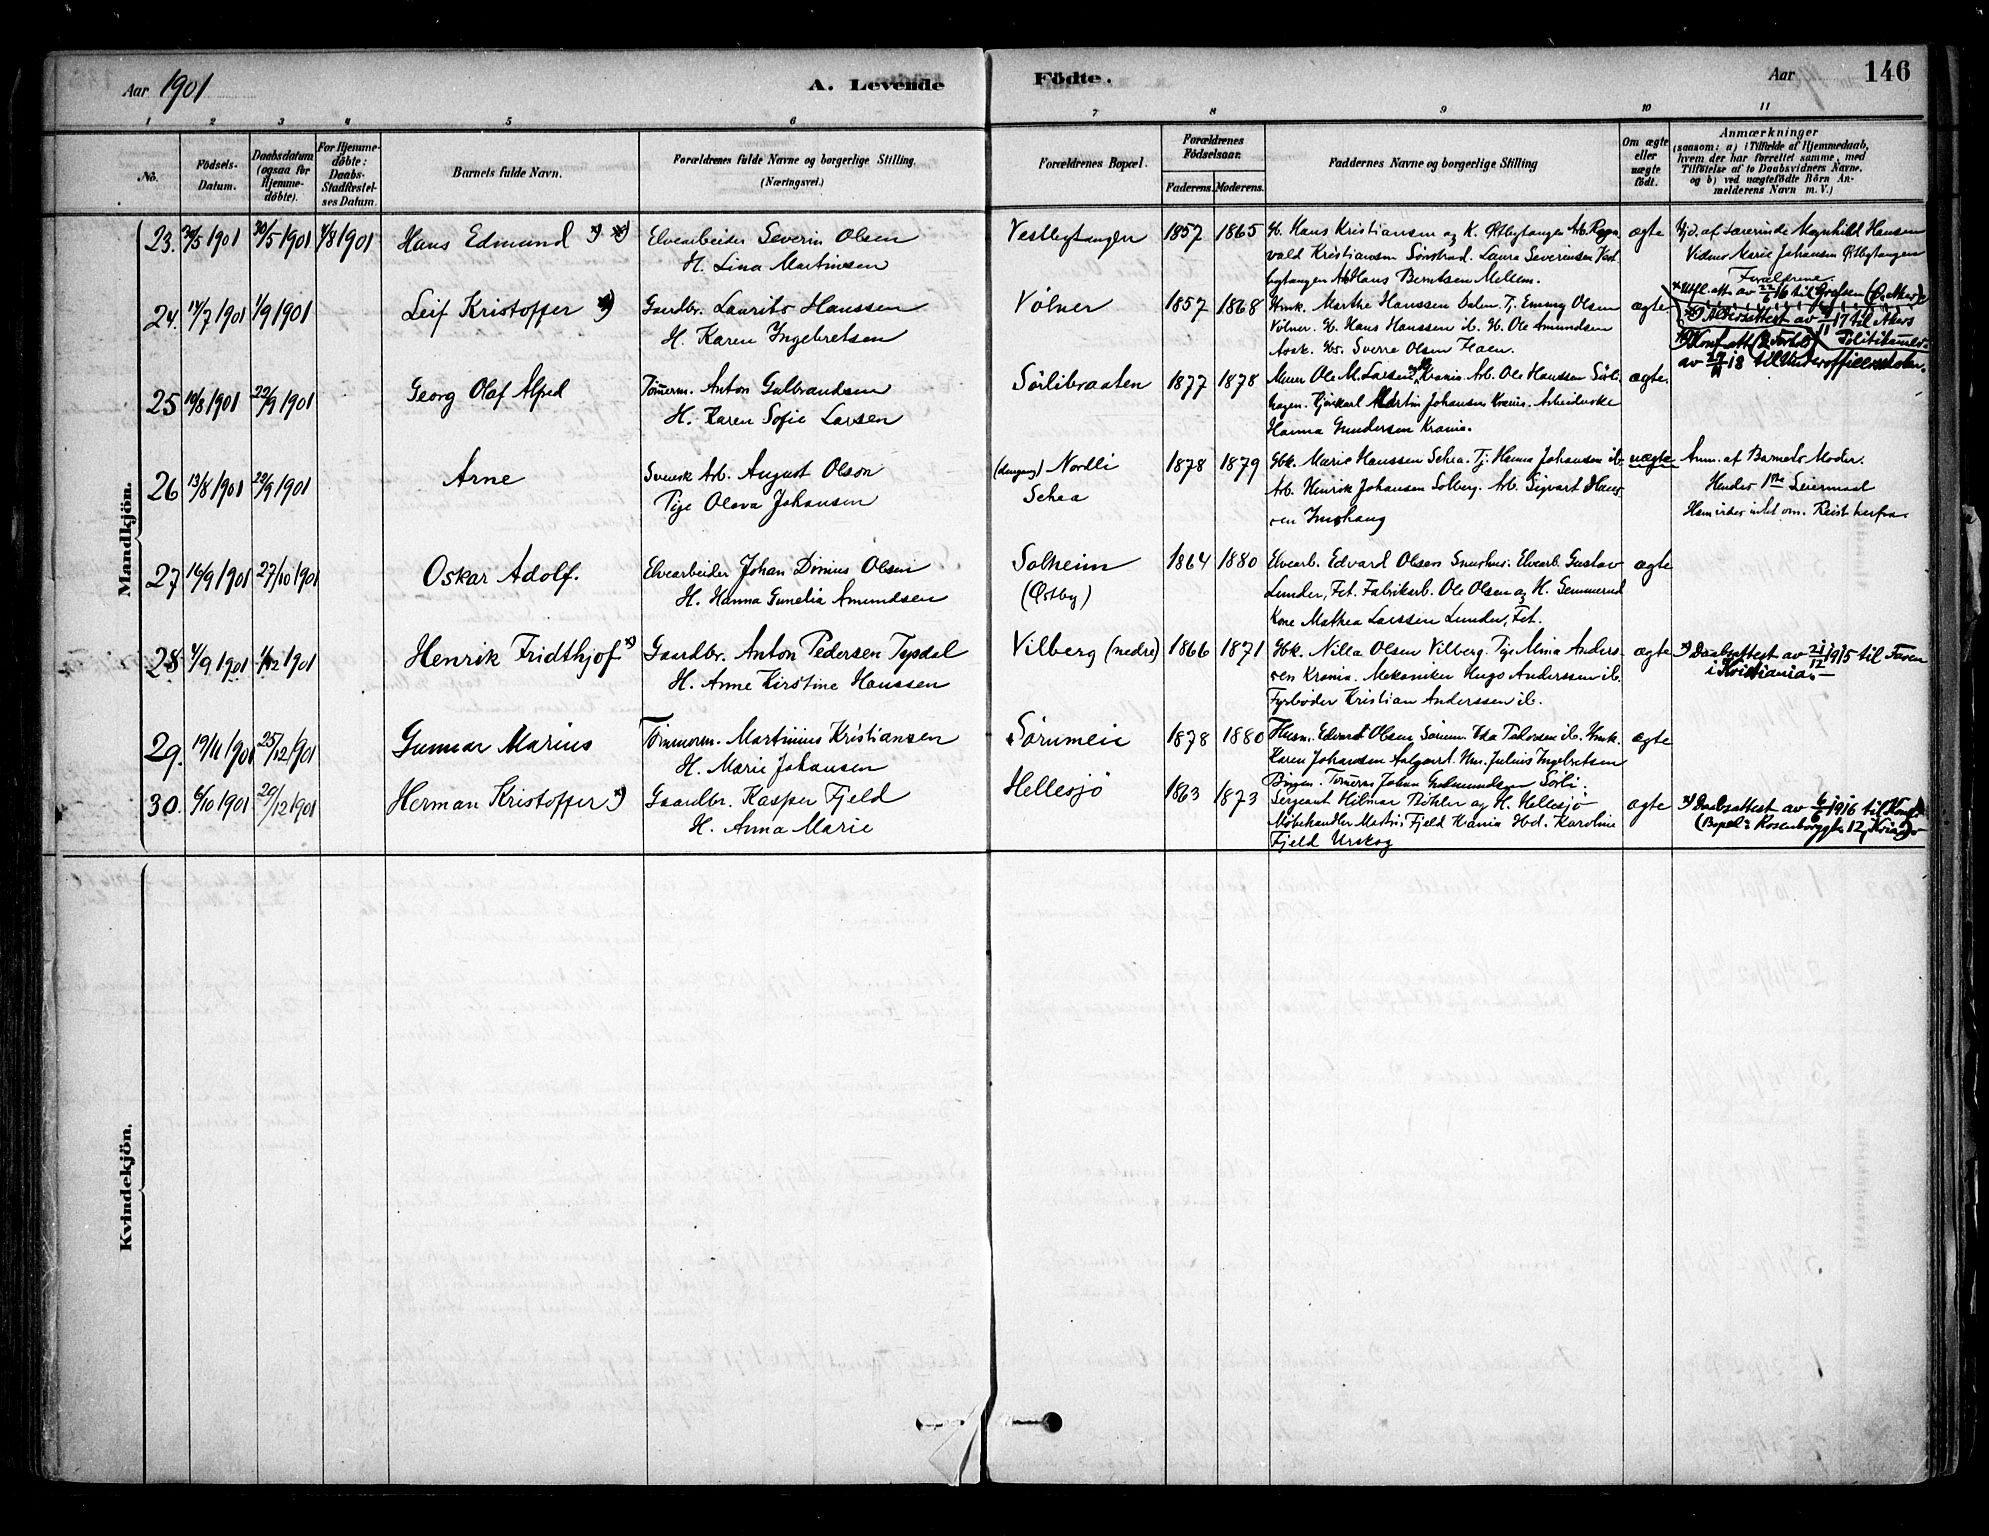 Aar 1901
A. Levende
Födte.
Aar
146
1 2 3 4 5 6 7 8 9 10 11
No.
Födsels-Datum.
Daabsdatum (ogsaa for Hjemme-döbte).
For Hjemme-döbte: Daabs-Stadfæstel-ses Datum.
Barnets fulde Navn.
Forældrenes fulde Navne og borgerlige Stilling. (Næringsvei.)
Forældrenes Bopæl.
Forældrenes Födselsaar.
Faderens. Moderens.
Faddernes Navne og borgerlige Stilling
Om ægte eller uægte födt.
Anmærkninger
(saasom: a) i Tilfælde af Hjemmedaab, hvem der har forrettet samme, med Tilföielse af to Daabsvidners Navne, og b) ved uægtefödte Börn An-melderens Navn m. V.)
Mandkjön.
23. 30/5 1901 4/8 1901 Hans Edmund x) Elvearbeider Severin Olsen
H. Lina Martinsen
Vestbytangen 1857 1865 Gb. Hans Kristiansen og K. Østbytangen Arb. Ragn
vald Kristiansen Sønstrød. Laura Severinsen Vest
bytangen Arb. Hans Berntsen Mellem.
ægte
Hjd. af Lærerinde Magnhild Hansen
Vidner Marie Johansen Østbytangen
Forældrene
24. 14/7 1901 1/9 1901 Leif Kristoffer x) Gaardbr. Laurits Hanssen
H. Karen Ingebretsen
Vølner 1857 1868 Enk. Marthe Hanssen Dalen. Tj. Emma Olsen
Vølner. G. Hans Hanssen ib. G. Ole Amundsen
Aosk. Gs. Sverre Olsen Haen.
ægte
x) Daabsattest av 17 til Akers
Politikammer
av 18 til Underofficerskolen.
25 19/8 1901 22/9 1901 Georg Olaf Alfred Tømerm. Anton Gulbrandsen
H. Karen Sofie Larsen
Sørlibraaten 1877 1878 Murer Ole M. Larsen Krania. Arb. Ole Hanssen Sørli-
hagen. Kjørekarl Martin Johansen Krania. Arbeiderske
Hanna Gundersen Krania.
ægte.
26 13/8 1901 22/9 1901 Arne Svensk Arb. August Olson
Pige Olava Johansen
(dengang) Nordli
Schea
1878 1879 Gbk. Marie Hanssen Schea. Tj. Hanna Johansen ib
Arb. Henrik Johansen Solberg. Arb. Sigvart Hans
sen Imshaug
uægte
Anm. af Barnets Moder.
Hendes 1ste Leiermaal
Hans vides intet om. Reist herfra.
27 16/9 1901 27/10 1901 Oskar Adolf. Elvearbeider Johan Dinius Olsen
H. Hanna Gunelia Amundsen
Solheim
(Østby)
1864 1880 Elvearb. Edvard Olsen Snushus. Elvearb. Gustav
Lunder, Fet. Fabrikarb. Ole Olsen og H. Gemmerud
Kone Mathea Larssen Lunder, Fet.
ægte
28 4/9 1901 1/12 1901 Henrik Fridthjof x) Gaardbr. Anton Pedersen Tysdal
H. Anne Kirstine Hanssen
Vilberg (nedre) 1866 1871 Gbk. Nilla Olsen Vilberg. Pige Alma Anders-
sen Krania. Mekaniker Hugo Anderssen ib.
Fyrbøder Kristian Anderssen ib.
ægte
x) Daabsattest av 21/12 1915 til Faren
i Kristiania.
29. 19/11 1901 25/12 1901 Gunnar Marius Tømmerm. Martinius Kristiansen
H. Marie Johansen
Sørumeie 1878 1880 Husm. Edvard Olsen Sørum. Ida Pålsosen ib. Enk.
Karen Johansen Aalgaard. Um. Julius Ingebretsen
Bingen. Tømerm. Johan Gudmundsen Sørli.
ægte
30. 6/10 1901 29/12 1901 Herman Kristoffer x) Gaardbr. Kasper Fjeld
H. Anna Marie
Hellesjö 1863 1873 Sergeant Hilmar Bøhler og H. Hellesjö
Møbelhandler Martin Fjeld Krania Gbd. Karoline
Fjeld Urskog
ægte
x) Daabsattest av 6/6 1916 til Konf.
(Bopæl: Rosenborggt. 12, Kria.)
Kvindekjön.